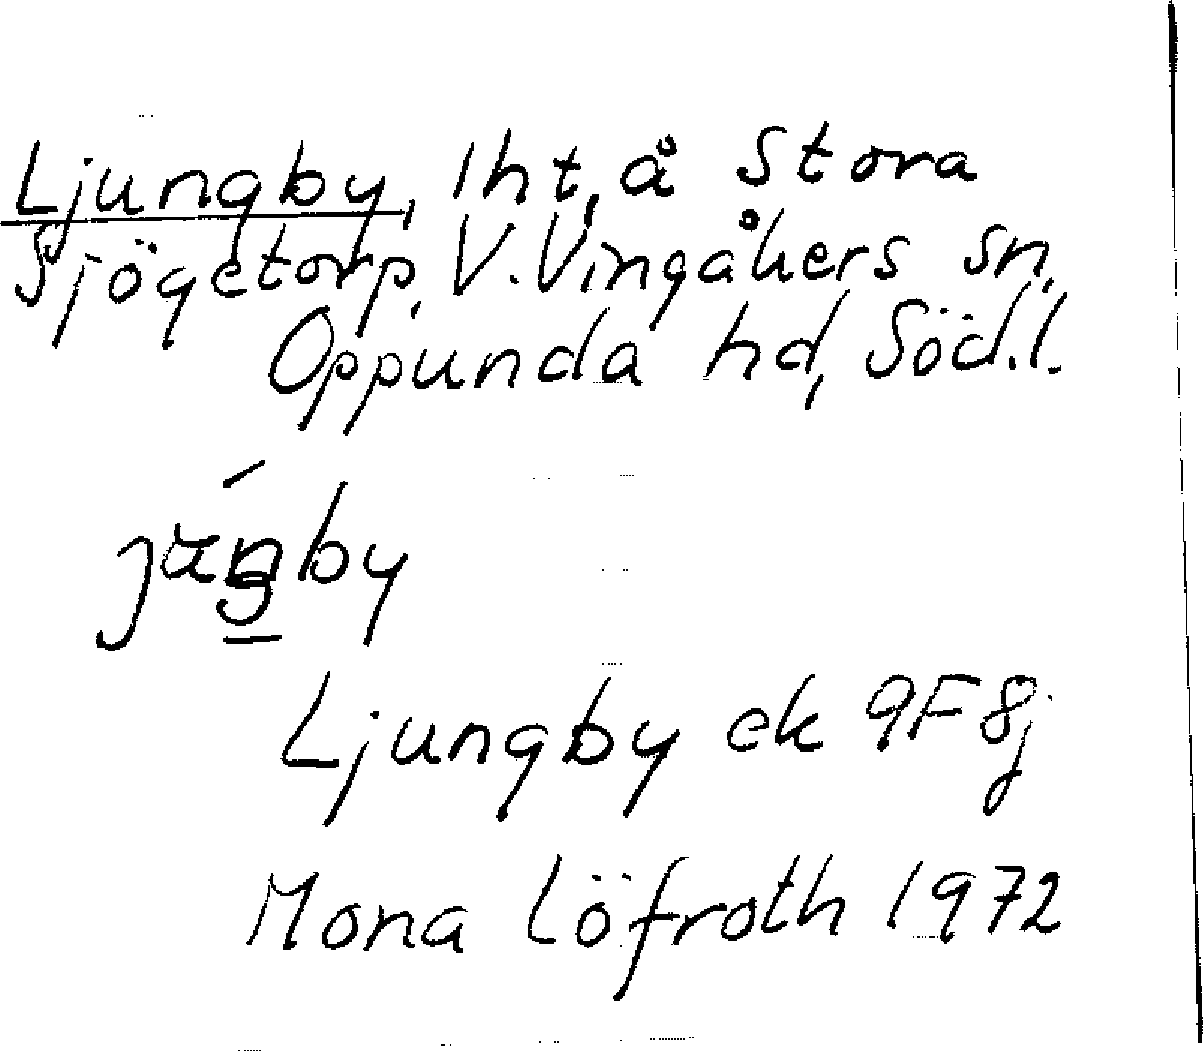 Ljungby, lht, å Stora
Sjögetorp, V. Vingåkers sn,
Oppunda hd, Söd.l.
Ljungby ek 9F 8j
Mona Löfroth 1972